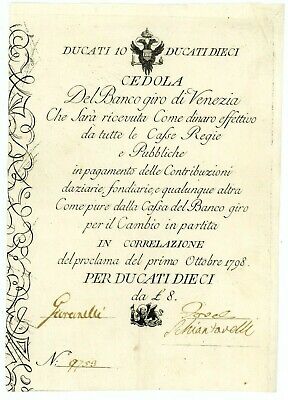 DUCATI 10 DUCATI DIECI
CEDOLA
Del Banco giro di Venezia
Che Sarà ricevuta Come dinaro effettivo
da tutte le Casse Regie
e Pubbliche
in pagamento delle Contribuzioni
daziarie, fondiarie, e qualunque altra
Come pure dalla Cassa del Banco giro
per il Cambio in partita
IN CORRELAZIONE
del proclama del primo Ottobre 1798.
PER DUCATI DIECI
da £ 8.
Giovanelli
Schiantarelli
N. 9753